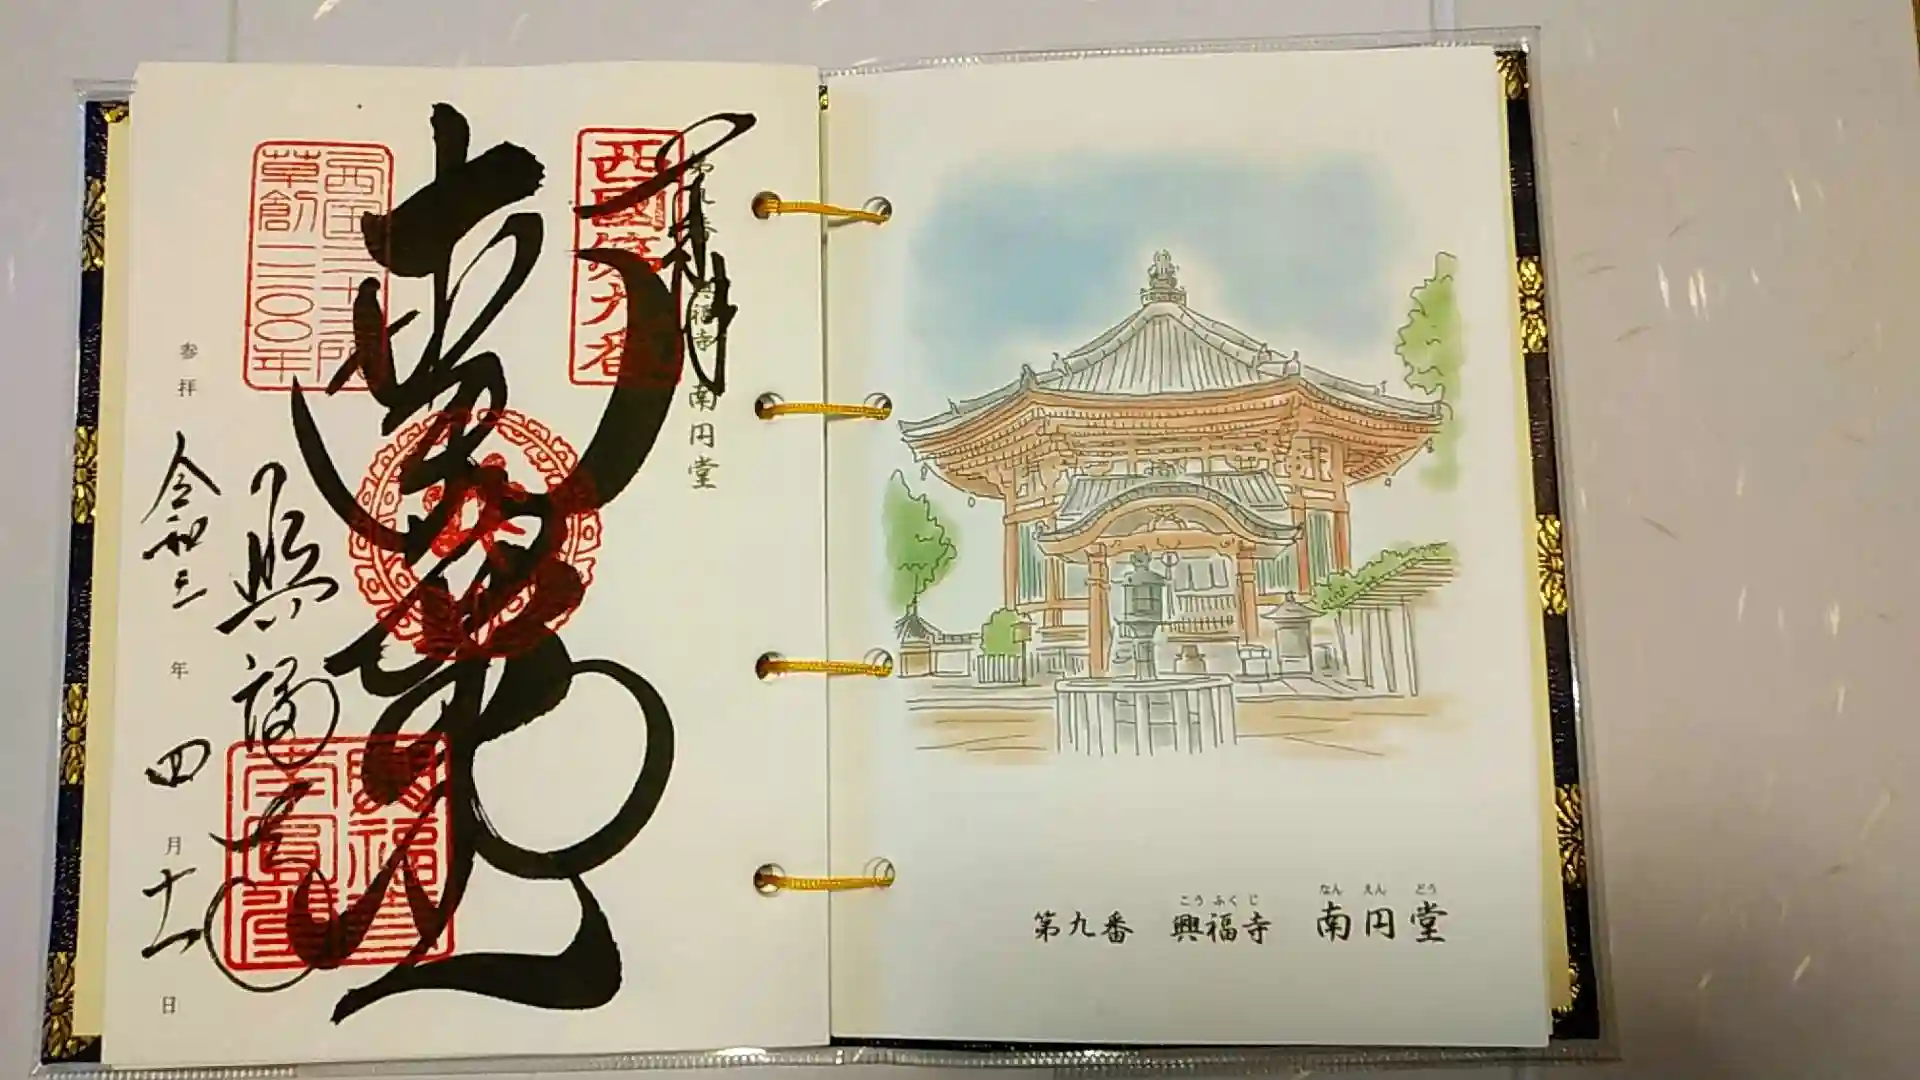 こうふくじ なんえんどう
第九番 興福寺 南円堂
第九番 興福寺 南円堂
奉拝
西國第九番
南円堂
西国三十三所
草創一三〇〇年
興福寺
興福寺
南圓堂
参拝 令和三年四月十一日